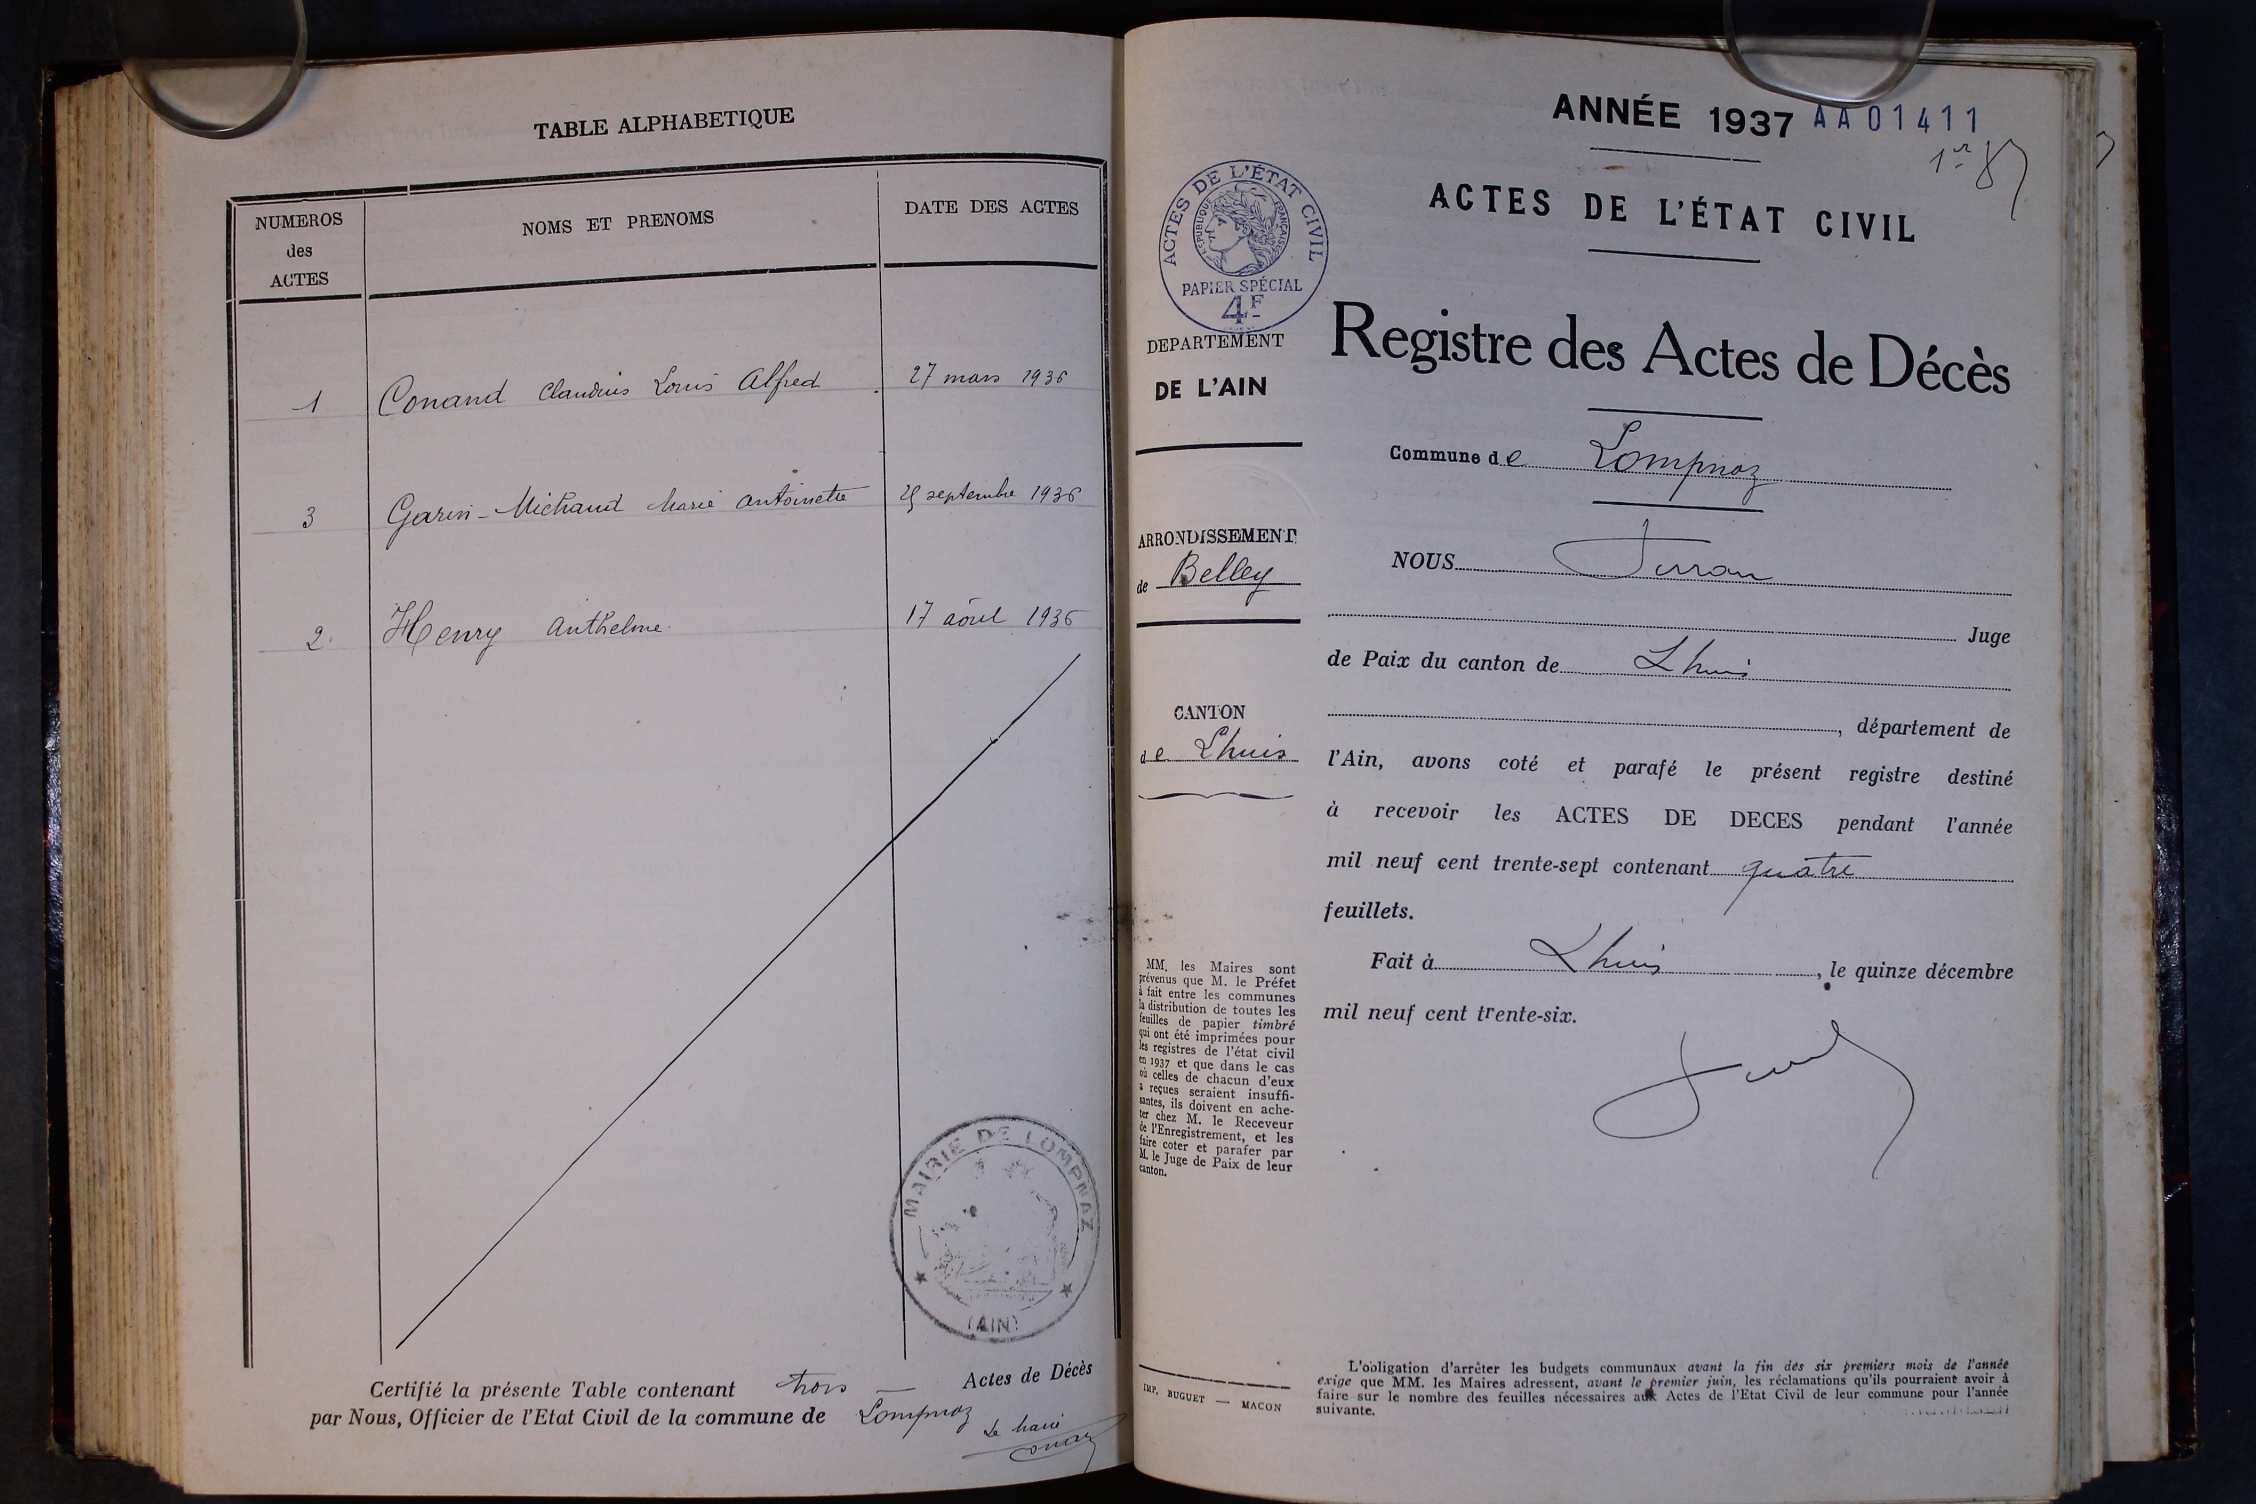 TABLE ALPHABETIQUE
NUMEROS
des
ACTES
NOMS ET PRENOMS
DATE DES ACTES
1 Conand Claudius Louis Alfred 27 mars 1936
3 Garin-Michaud Marie Antoinette 25 septembre 1936
2 Henry Anthelme 17 avril 1936
MAIRIE DE LOMPNAZ
(AIN)
Certifié la présente Table contenant trois Actes de Décès
par Nous, Officier de l'Etat Civil de la commune de Lompnaz
Le maire
ANNÉE 1937 AA01411
1er
ACTES DE L'ÉTAT CIVIL
ACTES DE L'ÉTAT CIVIL
RÉPUBLIQUE FRANÇAISE
PAPIER SPÉCIAL
4F
DEPARTEMENT
DE L'AIN
ARRONDISSEMENT
de Belley
CANTON
de Lhuis
MM. les Maires sont
prévenus que M. le Préfet
a fait entre les communes
la distribution de toutes les
feuilles de papier timbré
qui ont été imprimées pour
les registres de l'état civil
en 1937 et que dans le cas
où celles de chacun d'eux
a reçues seraient insuffi-
santes, ils doivent en ache-
ter chez M. le Receveur
de l'Enregistrement, et les
faire coter et parafer par
M. le Juge de Paix de leur
canton.
IMP. BUGUET — MACON
Registre des Actes de Décès
Commune de Lompnaz
NOUS
Juge
de Paix du canton de Lhuis
, département de
l'Ain, avons coté et parafé le présent registre destiné
à recevoir les ACTES DE DECES pendant l'année
mil neuf cent trente-sept contenant quatre
feuillets.
Fait à Lhuis, le quinze décembre
mil neuf cent trente-six.
L'obligation d'arrêter les budgets communaux avant la fin des six premiers mois de l'année
exige que MM. les Maires adressent, avant le premier juin, les réclamations qu'ils pourraient avoir à
faire sur le nombre des feuilles nécessaires aux Actes de l'Etat Civil de leur commune pour l'année
suivante.